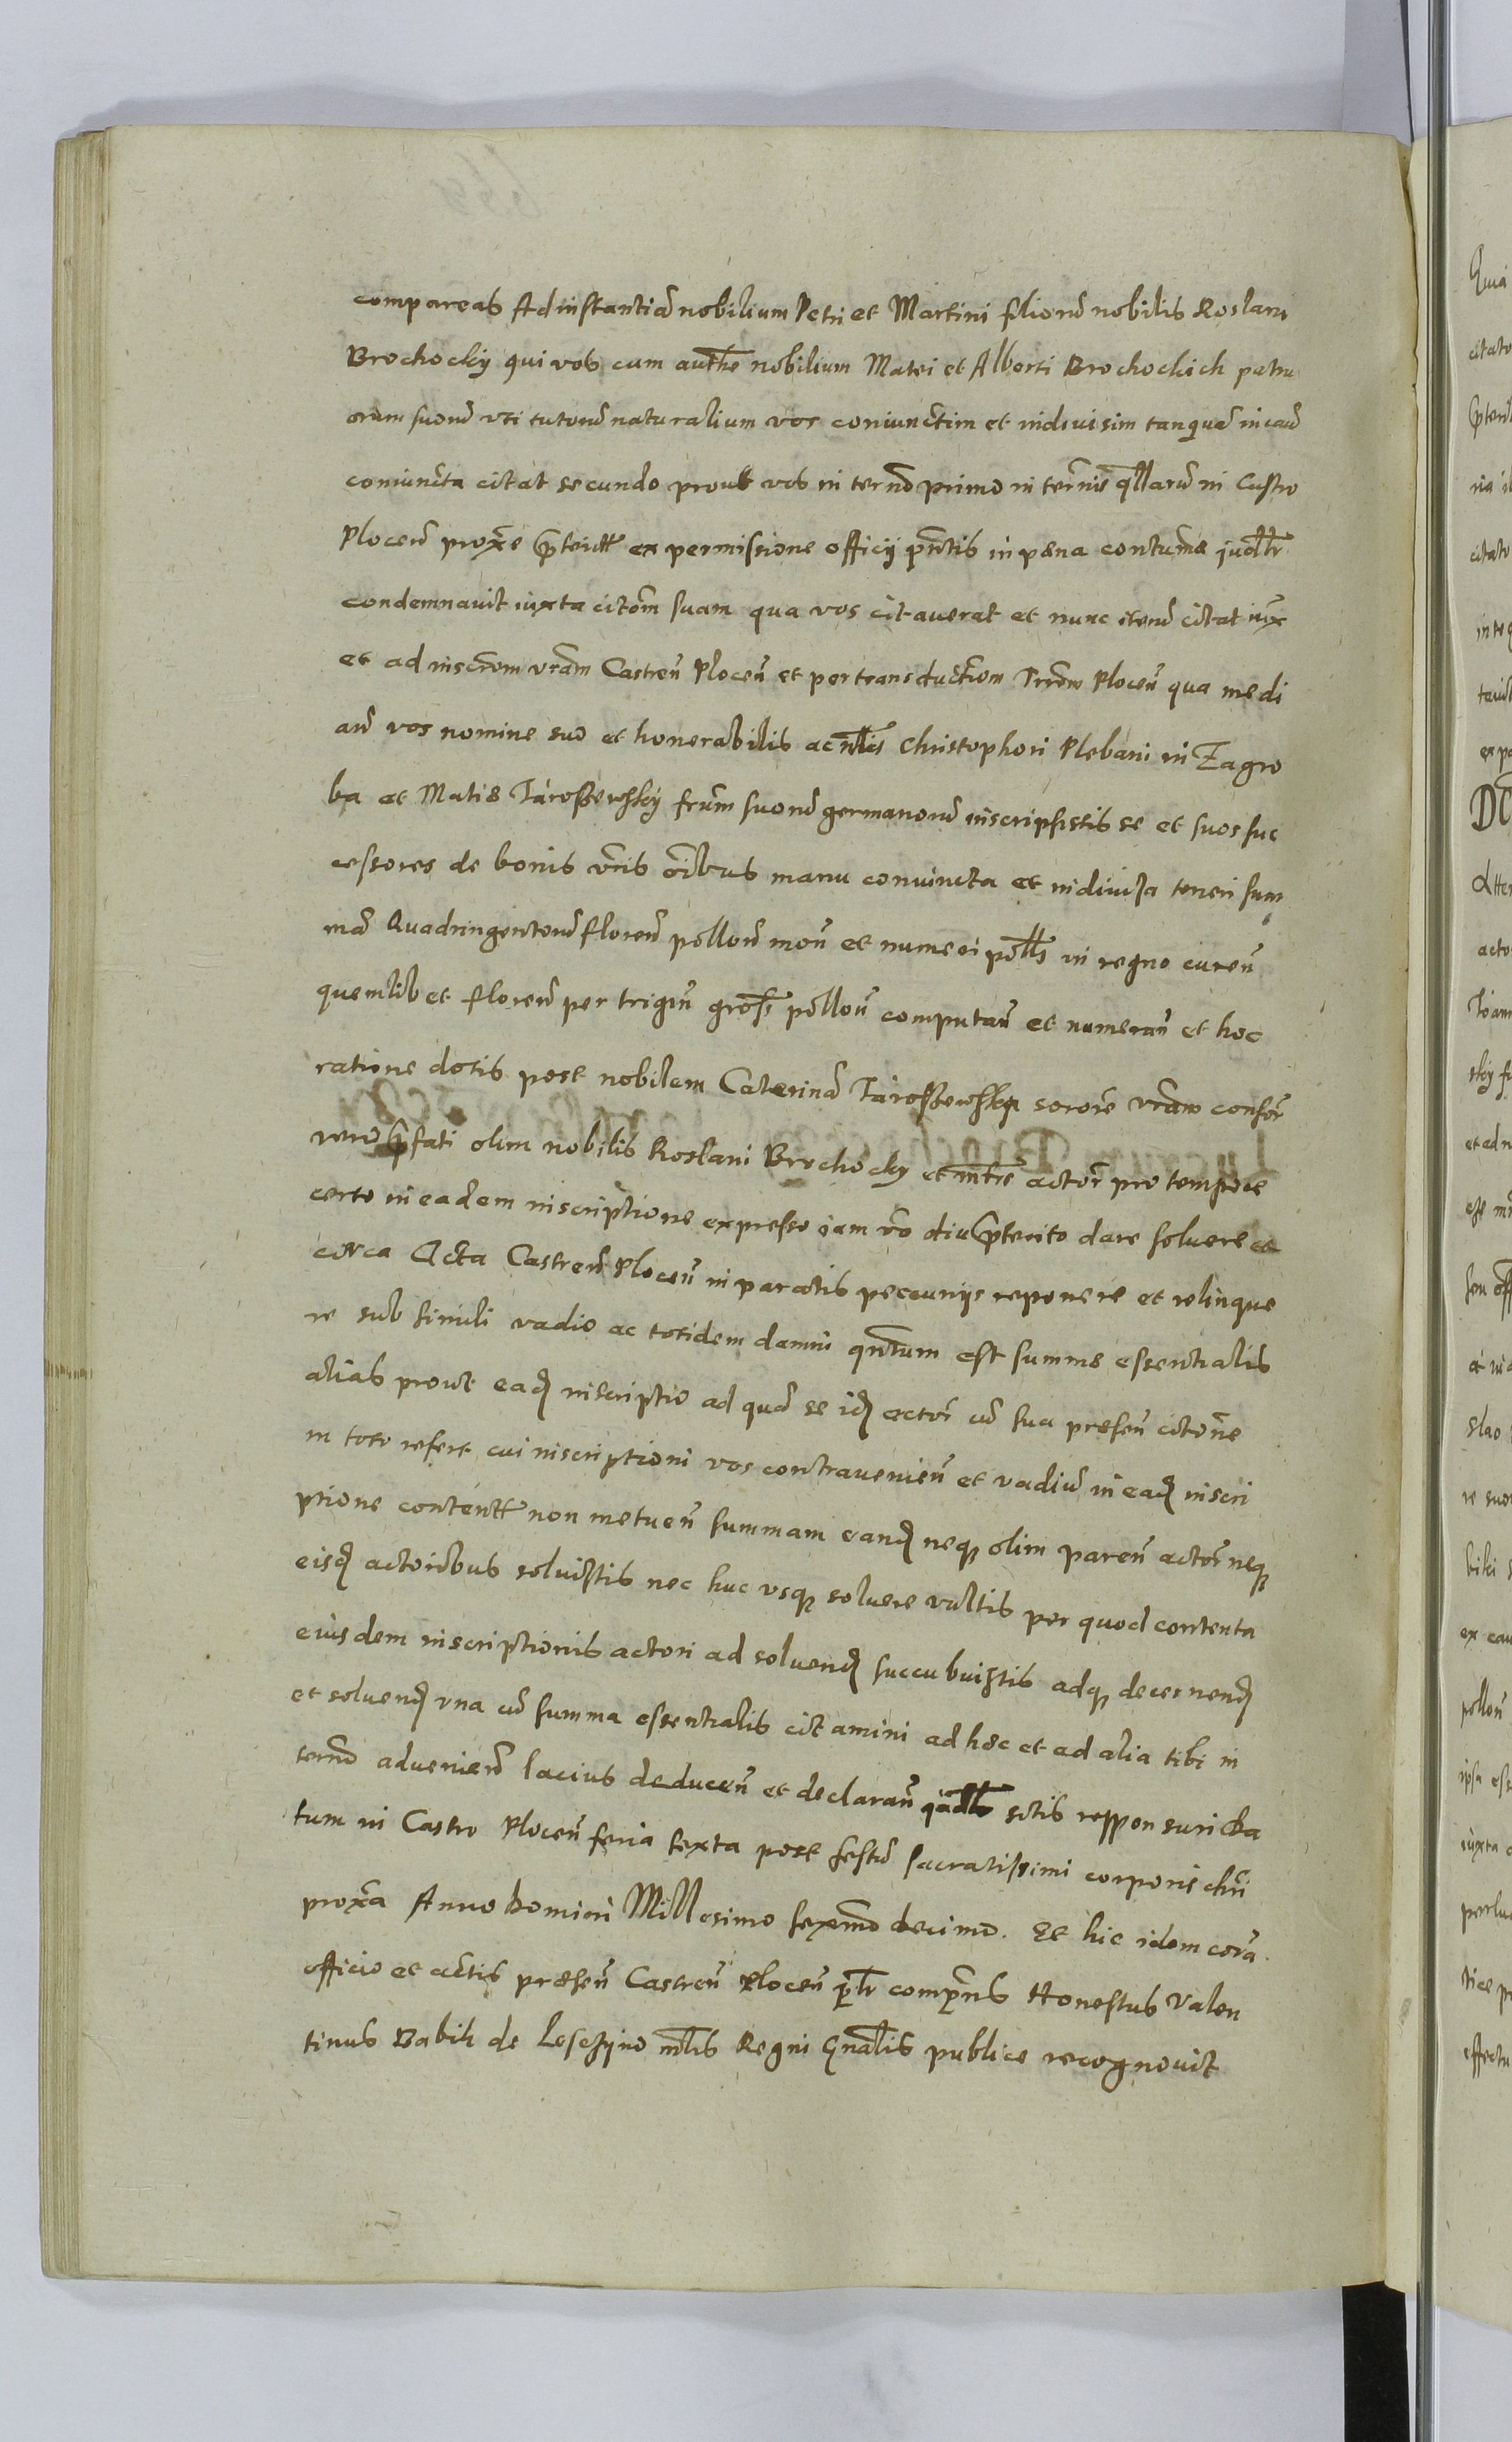 compareas Ad instantiā nobilium Petri et Martini filiorū nobilis Roslani
Brochocky qui vos cum authe nobilium Matei et Alberti Brochockich patru
orum suorū vti tutorū naturalium vos coniunctim et indiuisim tanquā in cau
coniuncta citat secundo prout vos in terno primo in ternis qllarū in Castro
Plocen proxe pterit ex permissione officij pntis in pæna contumæ judltr
condemnauit iuxta citom suam qua vos citauerat et nunc iterū citat iux
et ad inscrom vram Castren Plocen et per transductiom Trrem Plocen qua medi
an vos nomine suo et honorabilis ac nlis Christophori Plebani in Zagro
ba et Matis Tárosszewsky frum suorū germanorū inscripsistis se et suos suc
cessores de bonis vris oibus manu coniuncta et indiuisa teneri sum
mā Quadringentorū floren pollon mon et numeri pollis in regno curen
quemlibet floren per trigin gross pollon computan et numeran et hoc
ratione dotis post nobilem Caterinā Tárosszewska sororē vram consor
verū pfati olim nobilis Roslani Brochocky et mtre actor pro tempore
certo in eadem inscriptione expresso iam vo diu pterito dare soluere et
circa Acta Castren Plocen in paratis peccunijs reponere et relinque
re sub simili vadio ac totidem damni qntum est summe essentialis
alias prout eadʒ inscriptio ad quā se idʒ actor cū sua præsen citone
in toto refert cui inscriptioni vos contrauenien et vadiū in eadʒ inscri
ptione content non metuen summam eandʒ neqʒ olim paren actor neqʒ
eisdʒ actoribus soluistis nec huc vsqʒ soluere vultis per quod contenta
eiusdem inscriptionis actori ad soluendʒ succubuistis adqʒ decernendʒ
et soluendʒ vna cū summa essentialis citamini ad hæc et ad alia tibi in
terno aduenien lacius deducen et declaran jadltr sitis responsuri cita
tum in Castro Plocen feria sexta post festū sacratissimi corporis chri
proxa Anno Domini Millesimo sexmo decimo. Et hic idem cora
officio et actis præsen Castren Plocen pltr comprns Honestus Valen
tinus Babik de Lesczyno mlis Regni Gnalis publice recognouit